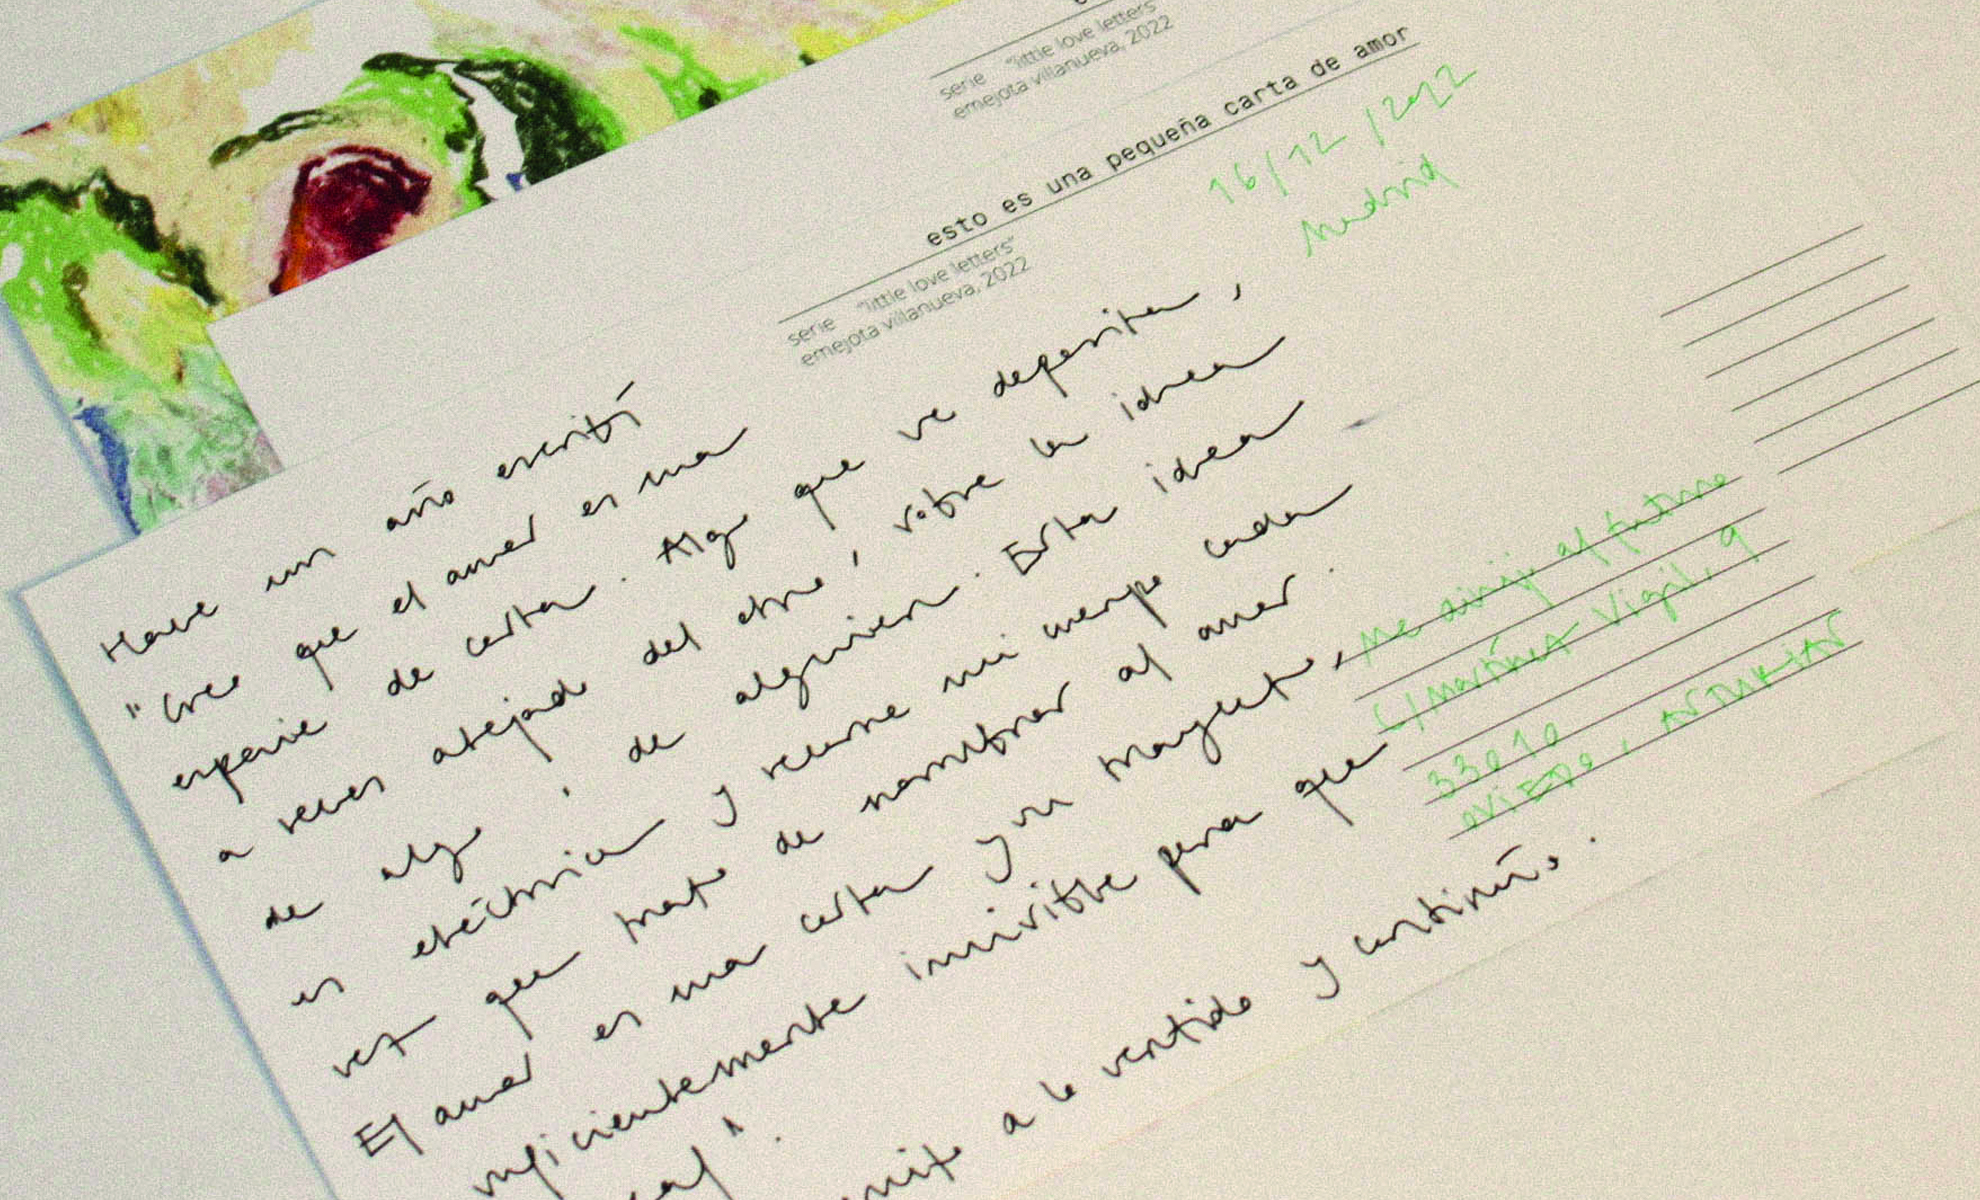 serie "little love letters
emejota villanueva, 2022
esto es una pequeña carta de amor
serie "little love letters"
emejota villanueva, 2022
16/12/2022
Madrid
Hace un año escribí
"Creo que el amor es una
especie de carta. Algo que se deposita,
a veces alejado del otro, sobre la idea
de algo, de alguien. Esta idea
es eléctrica y recorre mi cuerpo cada
vez que trato de nombrar al amor.
El amor es una carta y un trayecto,
suficientemente invisible para que
a lo sentido y continúo.
Me dirijo al futuro
C/ Martínez Vigil, 9
33010
OVIEDO, ASTURIAS